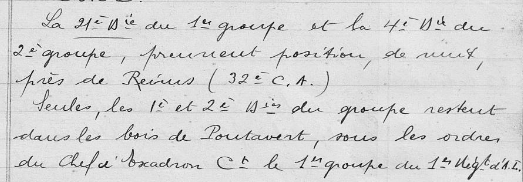 La 21e Bie du 1er groupe et la 4e Bie du
2e groupe, prennent position, de nuit,
près de Reims (32e C.A.)
Seules, les 1e et 2e Bies du groupe restent
dans les bois de Pontavert, sous les ordres
du Chef d'Escadron Ct le 1er groupe du 1er Régt d'A.